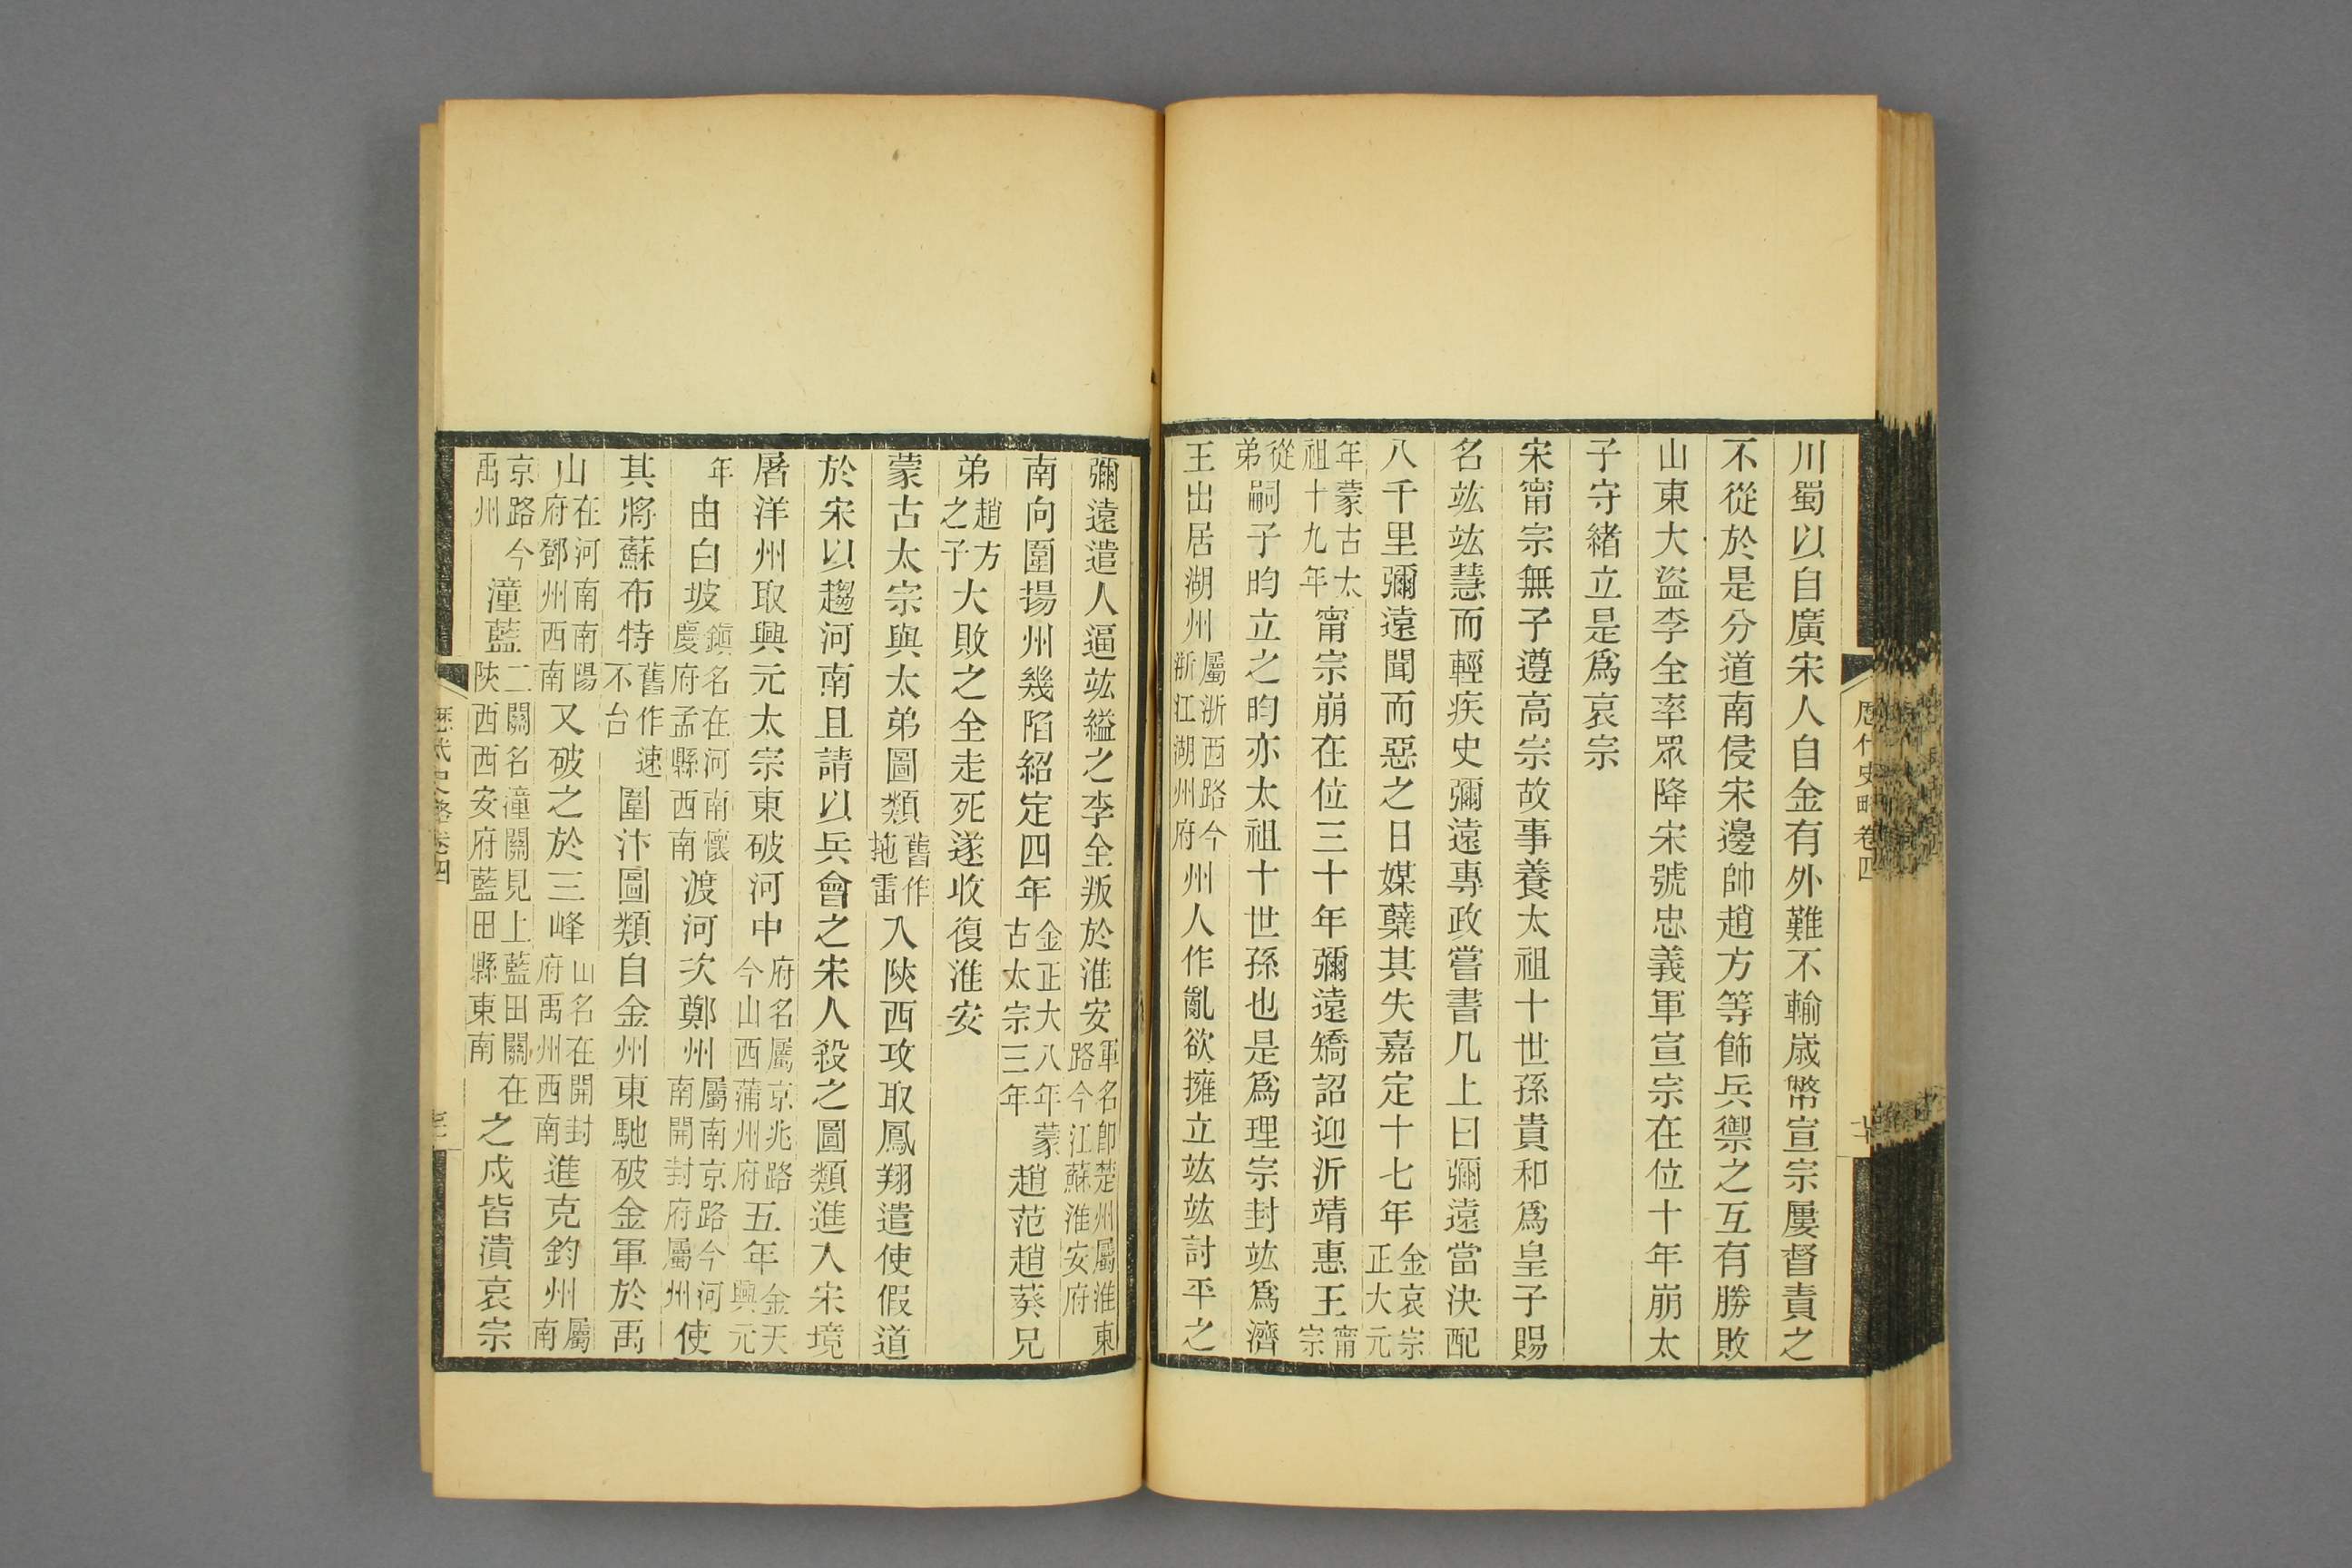 川蜀以自廣宋人自金有外難不輸歲幣宣宗屢督責之
不從於是分道南侵宋邊帥趙方等飾兵禦之互有勝敗
山東大盜李全率眾降宋號忠義軍宣宗在位十年崩太
子守緒立是爲哀宗
宋甯宗無子遵高宗故事養太祖十世孫貴和爲皇子賜
名竑竑慧而輕疾史彌遠專政嘗書几上曰彌遠當決配
八千里彌遠聞而惡之日媒糱其失嘉定十七年金哀宗正大元
年蒙古太祖十九年甯宗崩在位三十年彌遠矯詔迎沂靖惠王甯宗
從弟嗣子昀立之昀亦太祖十世孫也是爲理宗封竑爲濟
王出居湖州屬浙西路今浙江湖州府州人作亂欲擁立竑竑討平之
彌遠遣人逼竑縊之李全叛於淮安軍名卽楚州屬淮東路今江蘇淮安府
南向圍揚州幾陷紹定四年金正大八年蒙古太宗三年趙范趙葵兄
弟趙方之子大敗之全走死遂收復淮安
蒙古太宗與太弟圖類舊作拖雷入陝西攻取鳳翔遣使假道
於宋以趨河南且請以兵會之宋人殺之圖類進入宋境
屠洋州取興元太宗東破河中府名屬京兆路今山西蒲州府五年金天興元
年由白坡鎭名在河南懷慶府孟縣西南渡河次鄭州屬南京路今河南開封府屬州使
其將蘇布特舊作速不台圍汴圖類自金州東馳破金軍於禹
山在河南南陽府鄧州西南又破之於三峰山名在開封府禹州西南進克鈞州屬南
京路今禹州潼藍二關名潼關見上藍田關在陝西西安府藍田縣東南之戍皆潰哀宗
歷代史略卷四